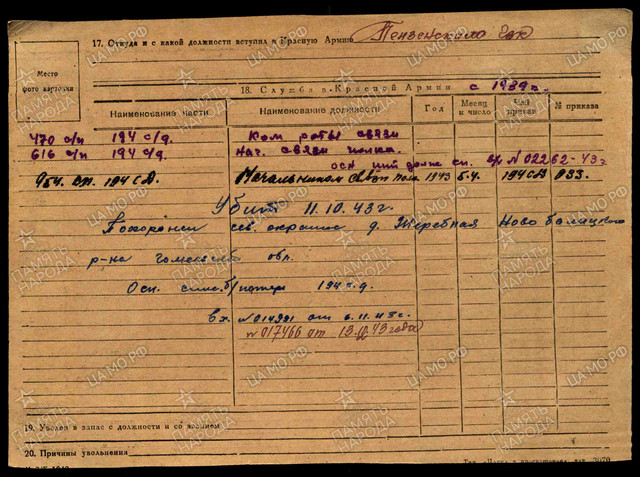 17. Откуда и с какой должности вступил в Красную Армию Пензенского
Место
фото карточки
18. Служба в Красной Армии с 1939г.
Наименование части Наименование должности Год Месяц и число Чей приказ № приказа
470 с/п 194 с/д. Ком роты связи
616 с/п 194 с/д. нач. связи полка.
осн №02262-43г
954. 194 СД. Начальником связи полка 1943 5.4. 194 СД 033.
Убит 11.10.43г.
Похоронен сев окраина д. Жеребная Ново
р-на Гомельской обл.
Осн. спис. б/потерь 194 с.д.
вх. №014991 от 6.11.43г.
№017466 от 43 года
19. Уволен в запас с должности и со званием
20. Причины увольнения
ПАМЯТЬ НАРОДА
ЦАМО.РФ